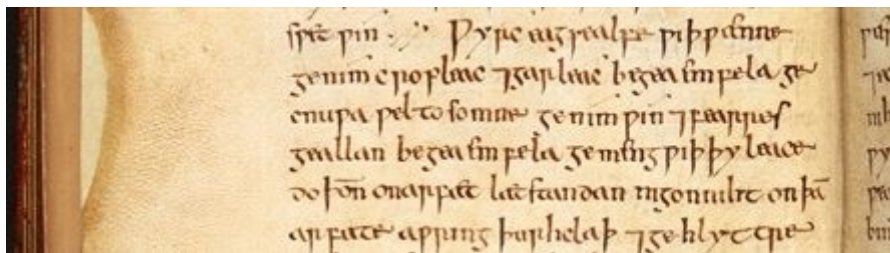 ƿin .,' Ƿyrc eagsealfe ƿiþ ƿænne
genim cropleac ⁊ garleac begea emfela ge
cnuƿa ƿel tosomne genim ƿin ⁊ fearres
geallan begea emfela gemeng ƿiþ þy leace
do þoñ on arfæt læt standan nigon niht on þā
arfæte aƿring þurh claþ ⁊ gehlyttre